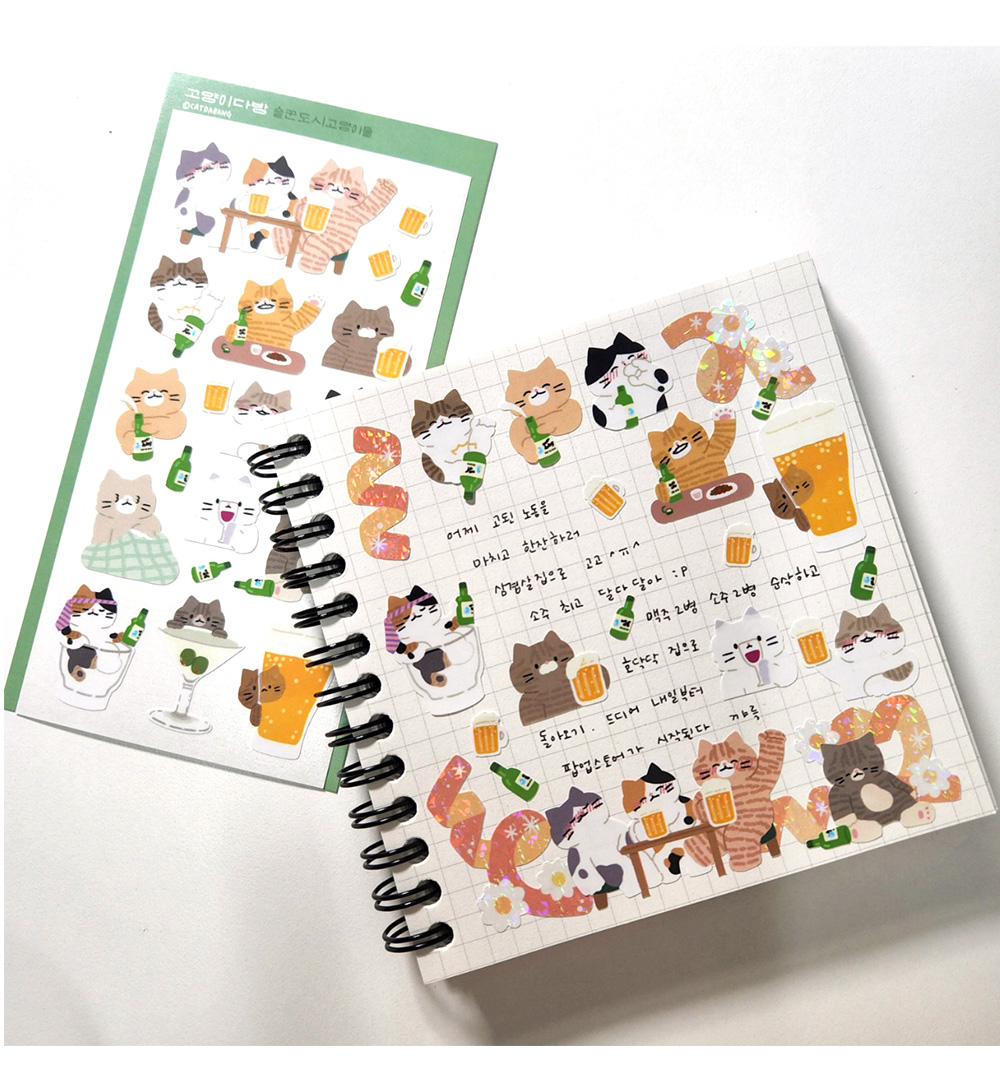 고양이다방
©CATDABANG
술퀸도시고양이들
어제 고된 노동을
마치고 한잔하러
삼겹살집으로 고고 ^ㅠ^
소주 최고 달다달아 :P
맥주 2병 소주 2병 순삭하고
호닥닥 집으로
돌아오기. 드디어 내일부터
팝업스토어가 시작된다 꺄륵